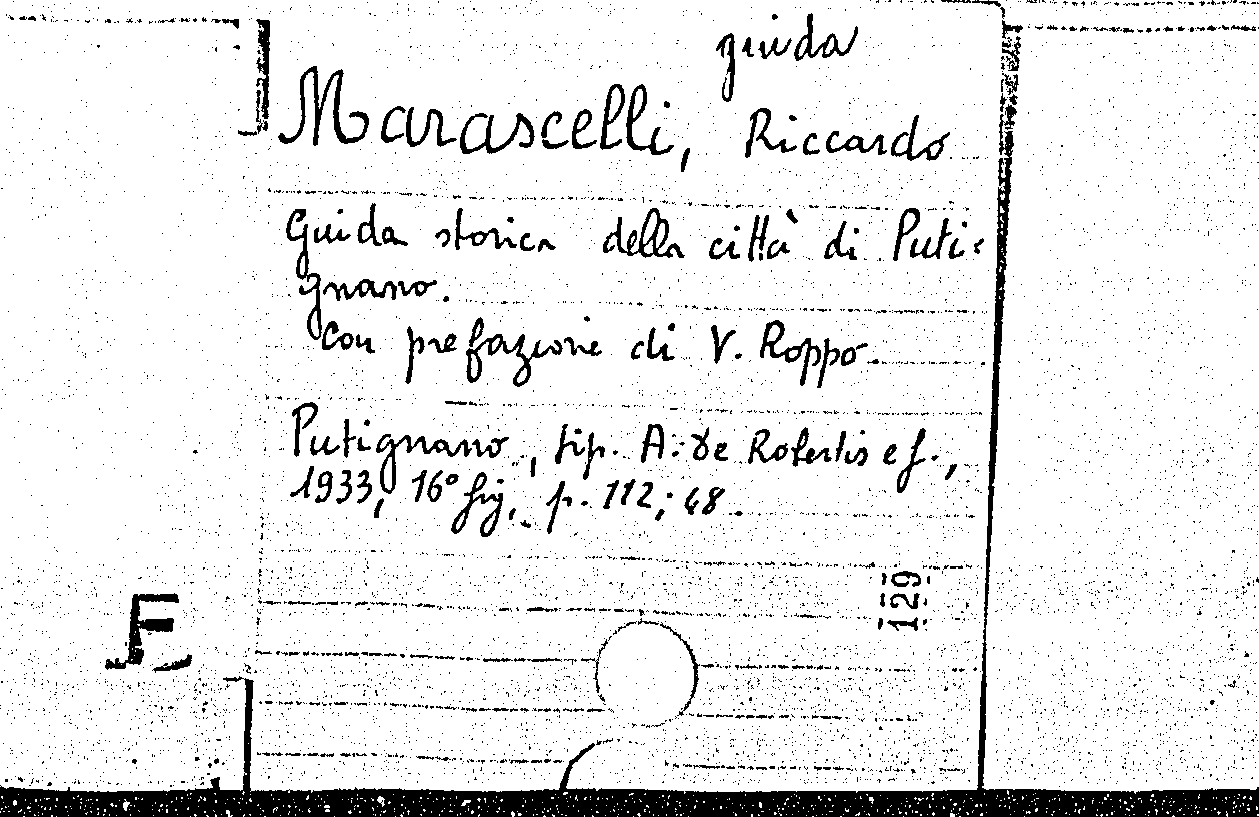 guida
Marascelli, Riccardo
Guida storica della città di Puti-
gnano.
Con prefazione di V. Roppo.
Putignano, tip. A. De Robertis e f.,
1933, 16° fig., p. 112; 48.
129
E